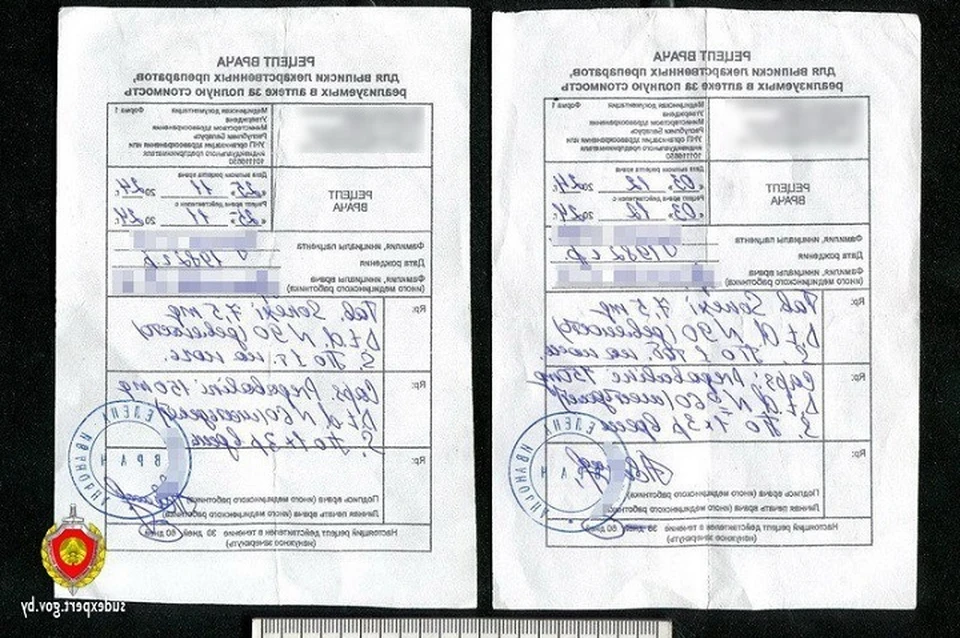 РЕЦЕПТ ВРАЧА
для выписки лекарственных препаратов,
реализуемых в аптеке за полную стоимость
Медицинская документация Форма 1
Утверждена
Министерством здравоохранения
Республики Беларусь
УНП организации или
индивидуального предпринимателя
РЕЦЕПТ
ВРАЧА
Дата выписки рецепта врача
«25» 11 2024 г.
Рецепт врача действителен с
«25» 11 2024 г.
Фамилия, инициалы пациента
Дата рождения 1982 г.р.
Фамилия, инициалы врача
(иного медицинского работника)
Rp: Tab. Sonexi 7.5 mg
D.t.d. N 90 (девяносто)
S. По 1 т. на ночь.
Rp: Caps. Pregabalini 150 mg
D.t.d. N 60 (шестьдесят)
S. По 1 х 3 р
Rp:
ЕЛЕНА ИВАНОВНА
ВРАЧ
Подпись врача (иного медицинского работника)
Личная печать врача (иного медицинского работника)
Настоящий рецепт действителен в течение 30 дней 60 дней
(ненужное зачеркнуть)
РЕЦЕПТ ВРАЧА
для выписки лекарственных препаратов,
реализуемых в аптеке за полную стоимость
Медицинская документация Форма 1
Утверждена
Министерством здравоохранения
Республики Беларусь
УНП организации или
индивидуального предпринимателя
РЕЦЕПТ
ВРАЧА
Дата выписки рецепта врача
«03» 12 2024 г.
Рецепт врача действителен с
«03» 12 2024 г.
Фамилия, инициалы пациента
Дата рождения 1982 г.р.
Фамилия, инициалы врача
(иного медицинского работника)
Rp: Tab. Sonexi 7.5 mg
D.t.d. N 90 (девяносто)
S. По 1 таб на ночь.
Rp: Caps. Pregabalini 150 mg
D.t.d. N 60 (шестьдесят)
S. По 1 х 3 р
Rp:
ЕЛЕНА ИВАНОВНА
ВРАЧ
Подпись врача (иного медицинского работника)
Личная печать врача (иного медицинского работника)
Настоящий рецепт действителен в течение 30 дней 60 дней
(ненужное зачеркнуть)
sudexpert.gov.by